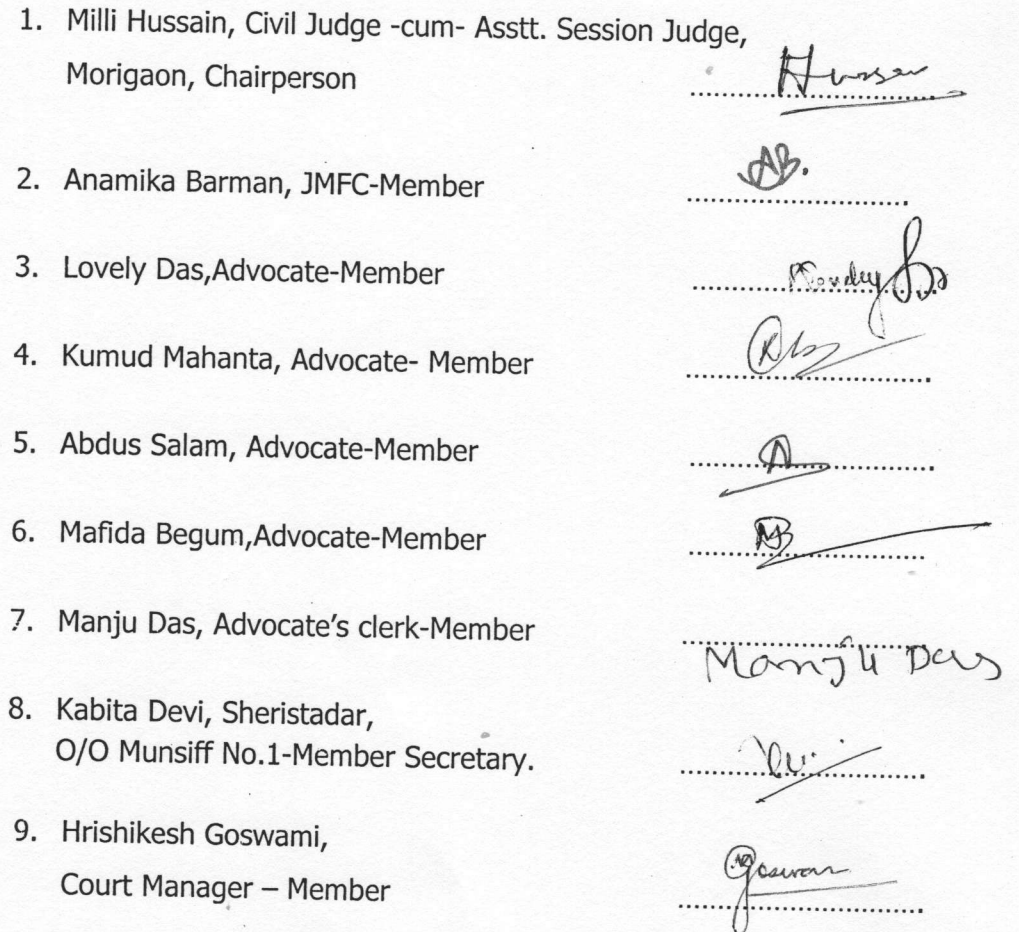 1. Milli Hussain, Civil Judge -cum- Asstt. Session Judge,
Morigaon, Chairperson
Hussain
2. Anamika Barman, JMFC-Member
AB.
3. Lovely Das,Advocate-Member
4. Kumud Mahanta, Advocate- Member
5. Abdus Salam, Advocate-Member
6. Mafida Begum,Advocate-Member
MB
7. Manju Das, Advocate's clerk-Member
Manju Das
8. Kabita Devi, Sheristadar,
O/O Munsiff No.1-Member Secretary.
9. Hrishikesh Goswami,
Court Manager – Member
Goswami